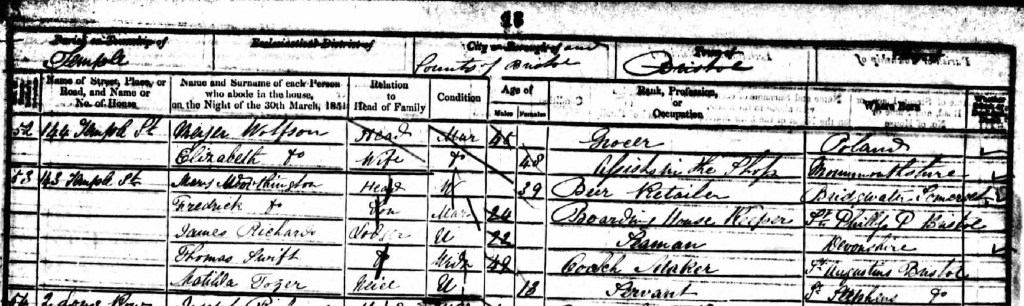 18
Parish or Township of Ecclesiastical District of City or Borough of and Town of
Temple County of Bristol Bristol
Name of Street, Place, or Road, and Name or No. of House Name and Surname of each Person who abode in the house, on the Night of the 30th March, 1851 Relation to Head of Family Condition Age of Males Females Rank, Profession, or Occupation Where Born
52 144 Temple St Wolfson Head Mar 45 Grocer Poland
Elizabeth Do Wife Do 48 Assists in the Shop Monmouthshire
53 143 Temple St Mary Worthington Head W 39 Beer Retailer Bridgwater Somerset
Fredrick Do Son Mar 24 Boarding House Keeper St Phillip P Bristol
James Richards Lodger U 22 Seaman Devonshire
Thomas Swift Do Widr 48 Coach Maker St Augustins Bristol
Matilda Tozer Niece U 13 Servant St Stephens Do
54